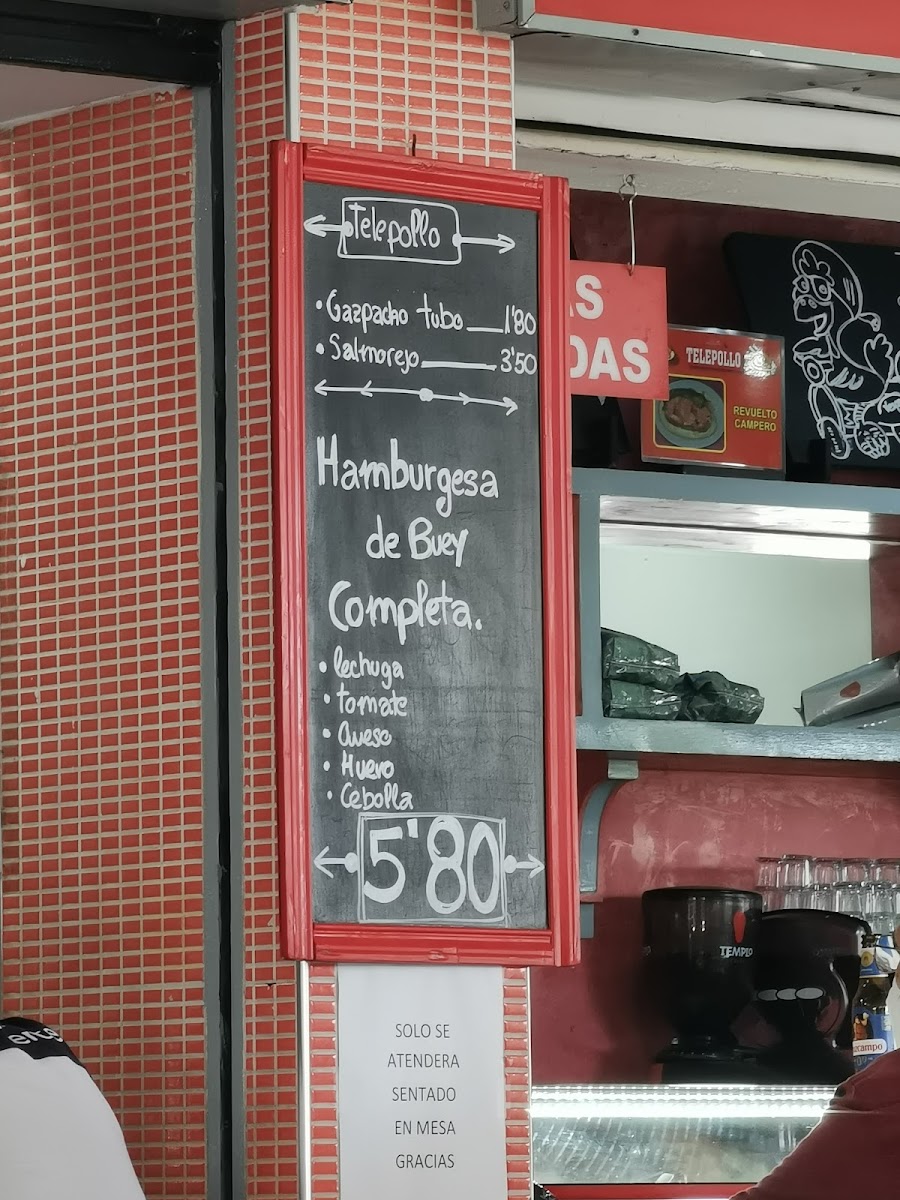 Telepollo
• Gazpacho tubo 1'80
• Salmorejo 3'50
Hamburgesa
de Buey
Completa.
• lechuga
• tomate
• Queso
• Huevo
• Cebolla
5'80
SOLO SE
ATENDERA
SENTADO
EN MESA
GRACIAS
TELEPOLLO
REVUELTO
CAMPERO
TEMPLO